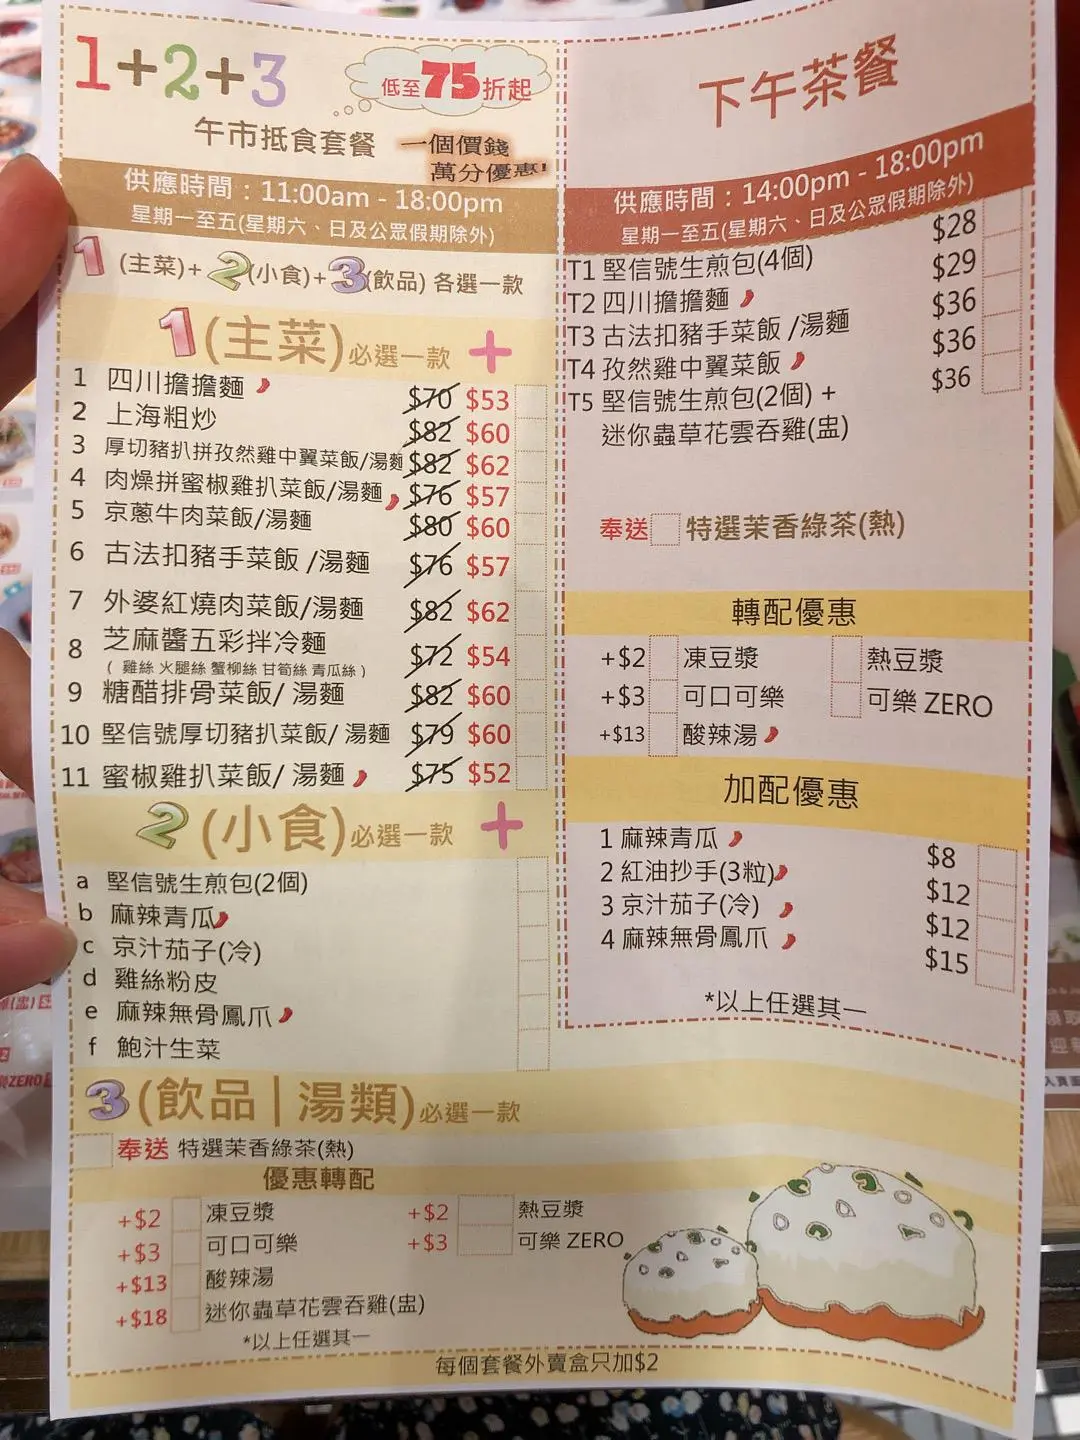 1+2+3
低至75折起
午市抵食套餐
一個價錢
萬分優惠!
供應時間：11:00am - 18:00pm
星期一至五(星期六、日及公眾假期除外)
1(主菜)+2(小食)+3(飲品) 各選一款
1(主菜)必選一款 +
1 四川擔擔麵 $70 $53
2 上海粗炒 $82 $60
3 厚切豬扒拼孜然雞中翼菜飯/湯麵 $82 $62
4 肉燥拼蜜椒雞扒菜飯/湯麵 $76 $57
5 京蔥牛肉菜飯/湯麵 $80 $60
6 古法扣豬手菜飯 /湯麵 $76 $57
7 外婆紅燒肉菜飯/湯麵 $82 $62
8 芝麻醬五彩拌冷麵 $72 $54
( 雞絲 火腿絲 蟹柳絲 甘筍絲 青瓜絲 )
9 糖醋排骨菜飯/ 湯麵 $82 $60
10 堅信號厚切豬扒菜飯/ 湯麵 $79 $60
11 蜜椒雞扒菜飯/ 湯麵 $75 $52
2 (小食)必選一款 +
a 堅信號生煎包(2個)
b 麻辣青瓜
c 京汁茄子(冷)
d 雞絲粉皮
e 麻辣無骨鳳爪
f 鮑汁生菜
3 (飲品 | 湯類)必選一款
奉送 特選茉香綠茶(熱)
優惠轉配
+$2 凍豆漿 +$2 熱豆漿
+$3 可口可樂 +$3 可樂 ZERO
+$13 酸辣湯
+$18 迷你蟲草花雲吞雞(盅)
*以上任選其一
每個套餐外賣盒只加$2
下午茶餐
供應時間：14:00pm - 18:00pm
星期一至五(星期六、日及公眾假期除外)
T1 堅信號生煎包(4個) $28
T2 四川擔擔麵 $29
T3 古法扣豬手菜飯 /湯麵 $36
T4 孜然雞中翼菜飯 $36
T5 堅信號生煎包(2個) + $36
迷你蟲草花雲吞雞(盅)
奉送 特選茉香綠茶(熱)
轉配優惠
+$2 凍豆漿 熱豆漿
+$3 可口可樂 可樂 ZERO
+$13 酸辣湯
加配優惠
1 麻辣青瓜 $8
2 紅油抄手(3粒) $12
3 京汁茄子(冷) $12
4 麻辣無骨鳳爪 $15
*以上任選其一